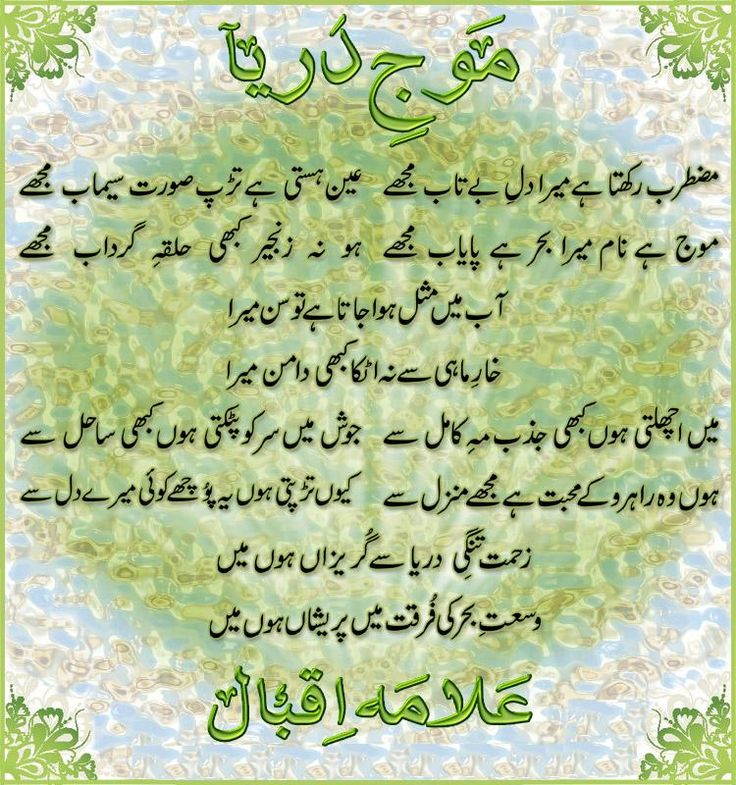 موجِ دریا
مضطرب رکھتا ہے میرا دلِ بے تاب مجھے عین ہستی ہے تڑپ صورت سیماب مجھے
موج ہے نام میرا بحر ہے پایاب مجھے ہو نہ زنجیر کبھی حلقہِ گرداب مجھے
آب میں مثل ہوا جاتا ہے توسن میرا
خارِ ماہی سے نہ اٹکا کبھی دامن میرا
میں اچھلتی ہوں کبھی جذب مہِ کامل سے جوش میں سر کو پٹکتی ہوں کبھی ساحل سے
ہوں وہ راہرو کے محبت ہے مجھے منزل سے کیوں تڑپتی ہوں یہ پوُچھے کوئی میرے دل سے
زحمت تنگیِ دریا سے گُریزاں ہوں میں
وسعتِ بحر کی فُرقت میں پریشاں ہوں میں
علامہ اِقبال